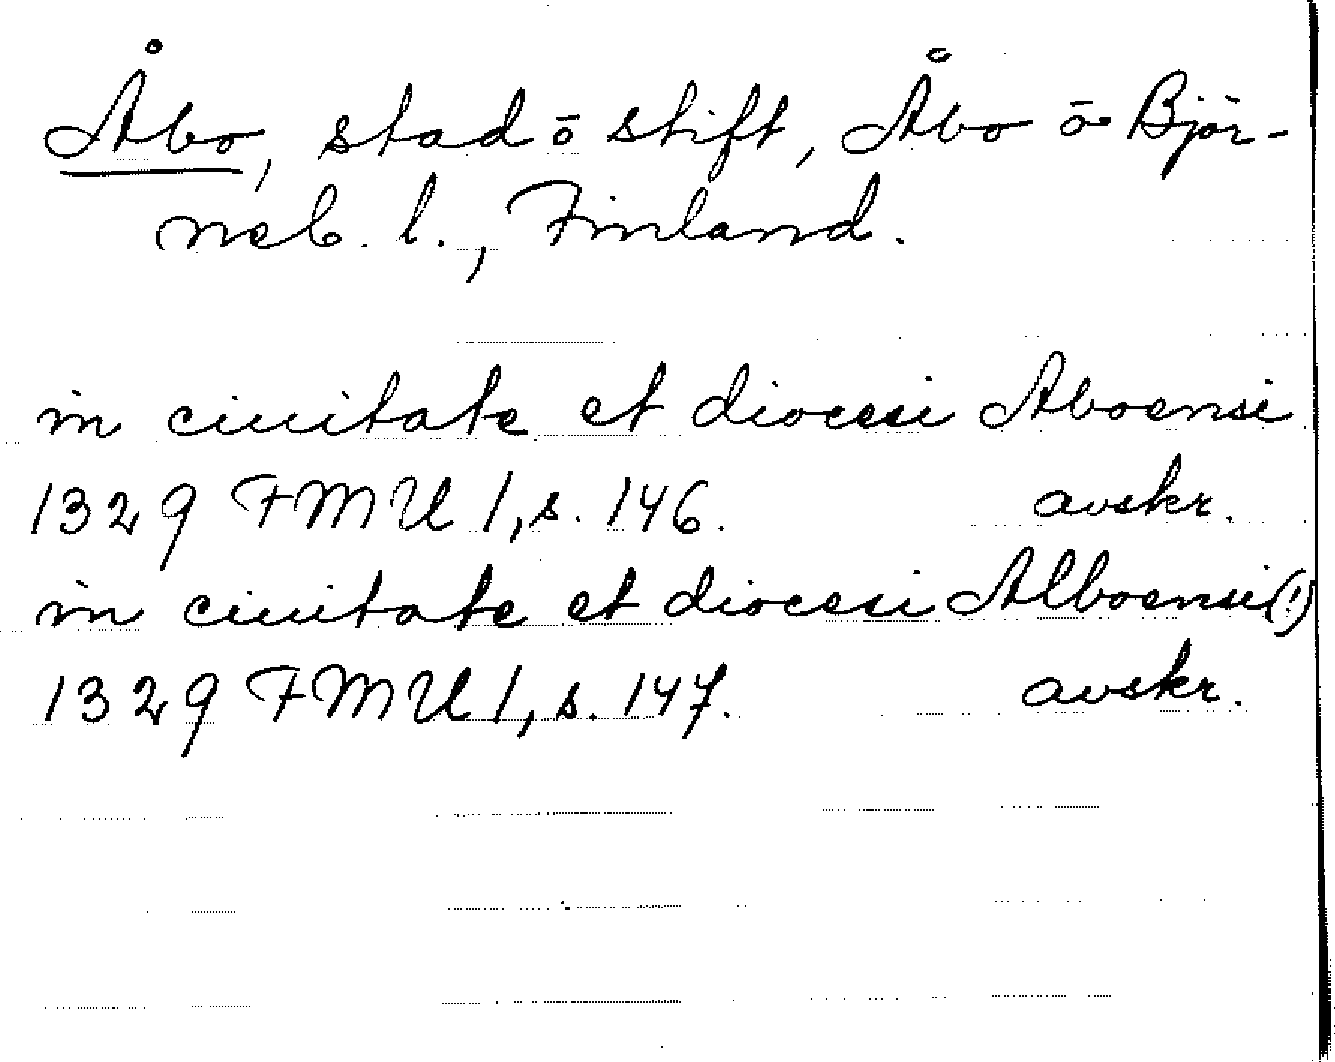 Åbo, stad ō stift, Åbo ō Björ-
neb. l., Finland.
in ciuitate et diocesi Aboensi
1329 FMU 1, s. 146. avskr.
in ciuitate et diocesi Alboensi(!)
1329 FMU 1, s. 147. avskr.